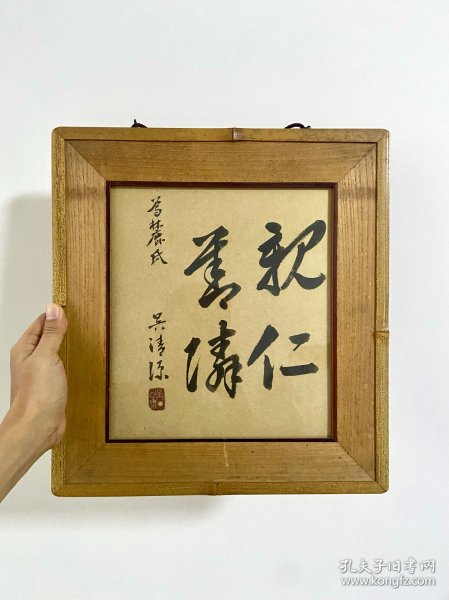 親仁
善隣
為麓氏
吳清源
孔夫子旧书网
www.kongfz.com